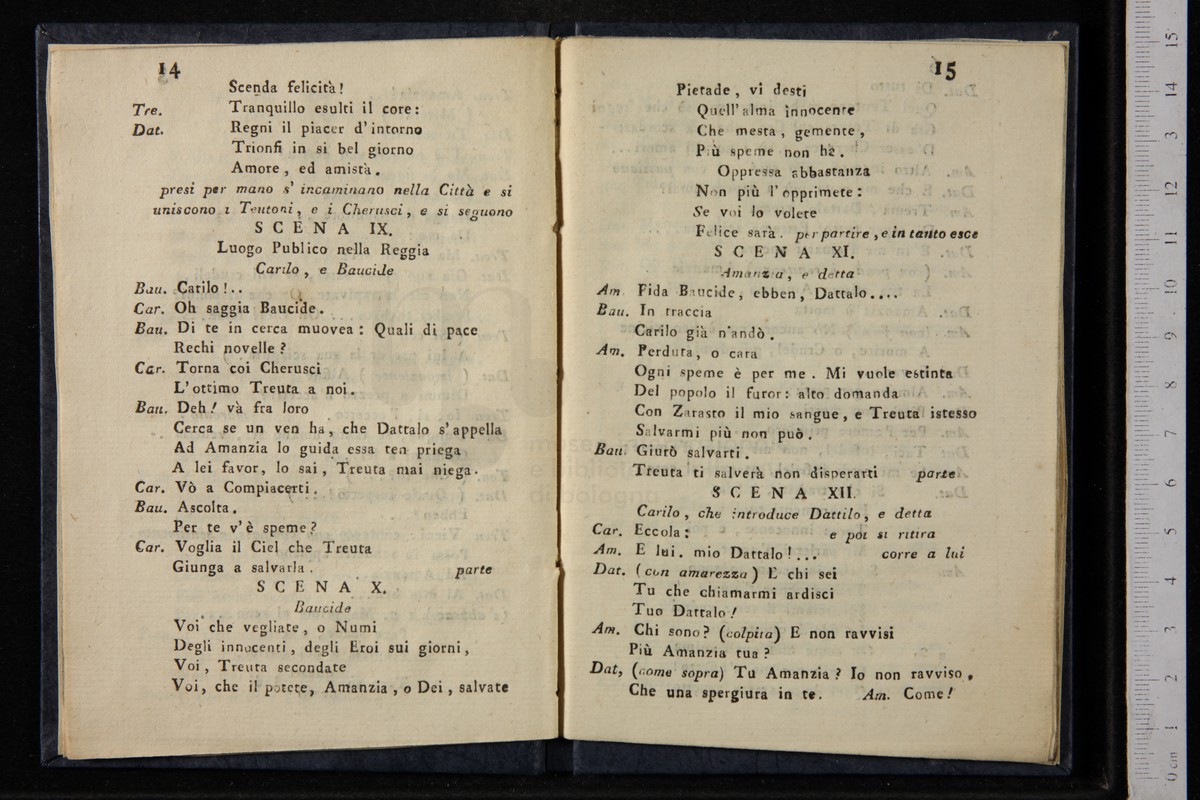 14
Scenda felicità!
Tre. Tranquillo esulti il core:
Dat. Regni il piacer d'intorno
Trionfi in si bel giorno
Amore, ed amistà.
presi per mano s' incaminano nella Città e si
uniscono i Teutoni, e i Cherusci, e si seguono
SCENA IX.
Luogo Publico nella Reggia
Carilo, e Baucide
Bau. Carilo!..
Car. Oh saggia Baucide.
Bau. Di te in cerca muovea: Quali di pace
Rechi novelle?
Car. Torna coi Cherusci
L'ottimo Treuta a noi.
Bau. Deh! và fra loro
Cerca se un ven ha, che Dattalo s'appella
Ad Amanzia lo guida essa ten priega
A lei favor, lo sai, Treuta mai niega.
Car. Vò a Compiacerti.
Bau. Ascolta.
Per te v'è speme?
Car. Voglia il Ciel che Treuta
Giunga a salvarla. parte
SCENA X.
Baucide
Voi che vegliate, o Numi
Degli innocenti, degli Eroi sui giorni,
Voi, Treuta secondate
Voi, che il potete, Amanzia, o Dei, salvate
15
Pietade, vi desti
Quell'alma innocente
Che mesta, gemente,
Più speme non hà.
Oppressa abbastanza
Non più l'opprimete:
Se voi lo volete
Felice sarà. per partire, e in tanto esce
SCENA XI.
Amanzia, e detta
Am. Fida Baucide, ebben, Dattalo....
Bau. In traccia
Carilo già n'andò.
Am. Perduta, o cara
Ogni speme è per me. Mi vuole estinta
Del popolo il furor: alto domanda
Con Zarasto il mio sangue, e Treuta istesso
Salvarmi più non può.
Bau. Giurò salvarti.
Treuta ti salverà non disperarti parte
SCENA XII.
Carilo, che introduce Dattilo, e detta
Car. Eccola: e poi si ritira
Am. E lui. mio Dattalo!... corre a lui
Dat. (con amarezza) E chi sei
Tu che chiamarmi ardisci
Tuo Dattalo!
Am. Chi sono? (colpita) E non ravvisi
Più Amanzia tua?
Dat, (come sopra) Tu Amanzia? Io non ravviso,
Che una spergiura in te. Am. Come!